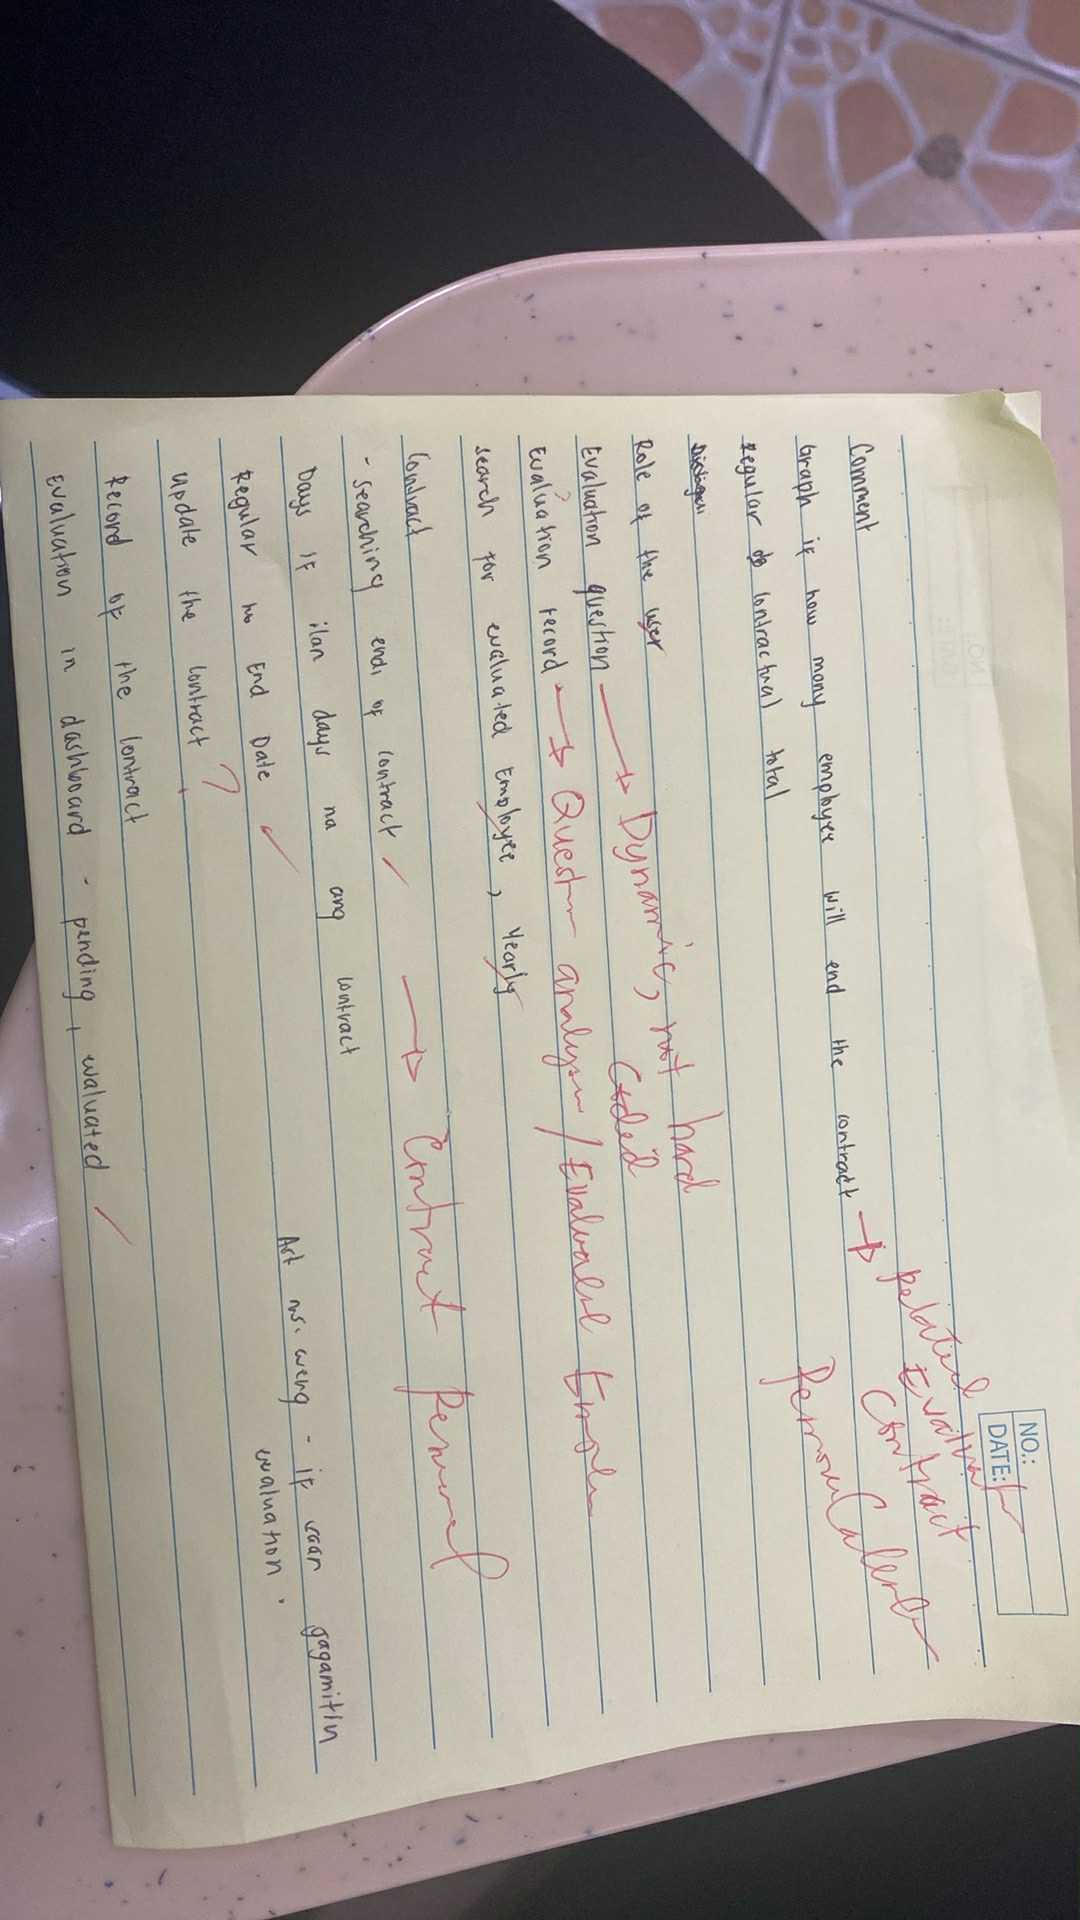 NO.:
DATE:
Comment
Graph if how many employee will end the contract → Related Evaluat
Contract
Remove Calendar
Regular & Contractual total
Role of the user
Evaluation question → Dynamic, not hard
Coded
Evaluation record → Question analysis / Evaluated Emple
search for evaluated Employee, Yearly
Contract
- searching ends of contract → Contract Renewal
Days if ilan days na ang contract
Regular no End Date
Ask ms. weng - if saan gagamitin
evaluation.
update the contract ?
Record of the contract
Evaluation in dashboard - pending, evaluated